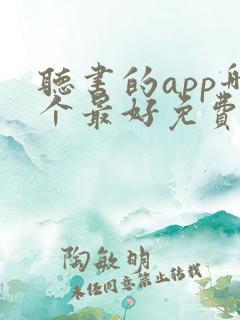 聽書的app
个最好免費
陶敏明
未经同意禁止转载